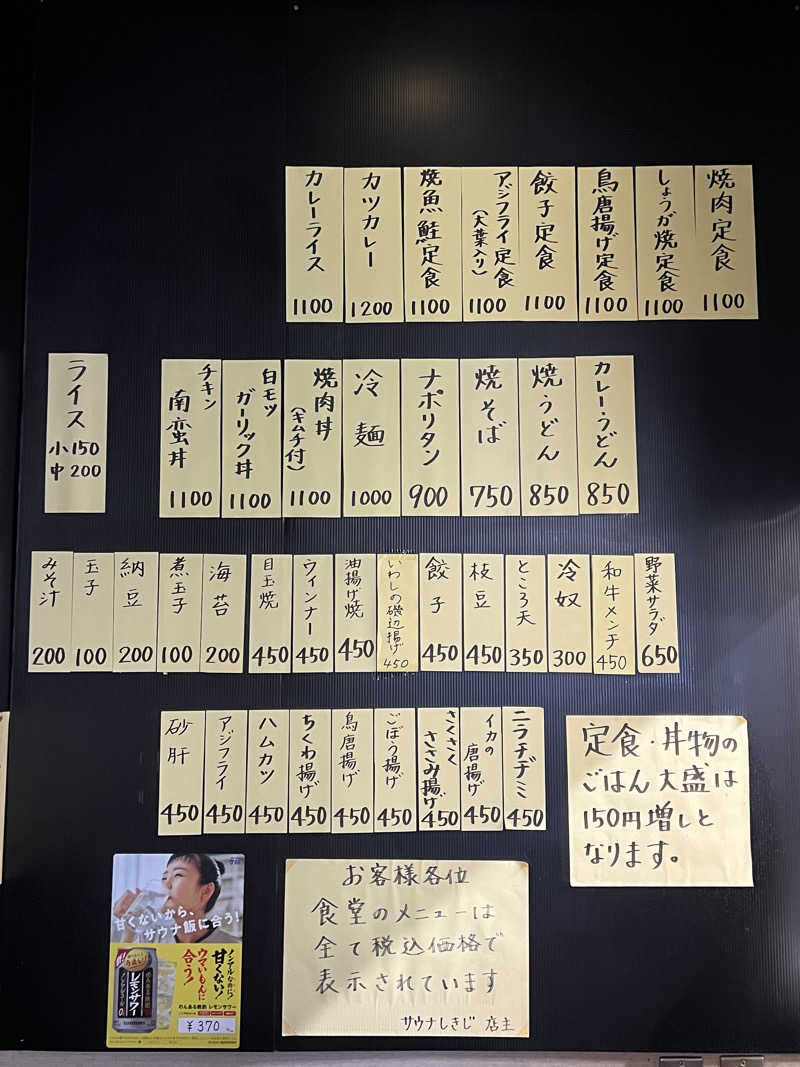 焼肉定食
1100
しょうが焼定食
1100
鳥唐揚げ定食
1100
餃子定食
1100
アジフライ定食
(大葉入り)
1100
焼魚鮭定食
1100
カツカレー
1200
カレーライス
1100
カレーうどん
850
焼うどん
850
焼そば
750
ナポリタン
900
冷麺
1000
焼肉丼
(キムチ付)
1100
白モツ
ガーリック丼
1100
チキン
南蛮丼
1100
ライス
小150
中200
野菜サラダ
650
和牛メンチ
450
冷奴
300
ところ天
350
枝豆
450
餃子
450
いわしの磯辺揚げ
450
油揚げ焼
450
ウィンナー
450
目玉焼
450
海苔
200
煮玉子
100
納豆
200
玉子
100
みそ汁
200
ニラチヂミ
450
イカの
唐揚げ
450
さくさく
ささみ揚げ
450
ごぼう揚げ
450
鳥唐揚げ
450
ちくわ揚げ
450
ハムカツ
450
アジフライ
450
砂肝
450
定食・丼物の
ごはん大盛は
150円増しと
なります。
お客様各位
食堂のメニューは
全て税込価格で
表示されています
サウナしきじ 店主
甘くないから、
サウナ飯に合う!
ノンアルなのに?
甘くない!
ウマいもんに
合う!
のんある晩酌
レモンサワー
ノンアルコール
のんある晩酌 レモンサワー
¥370